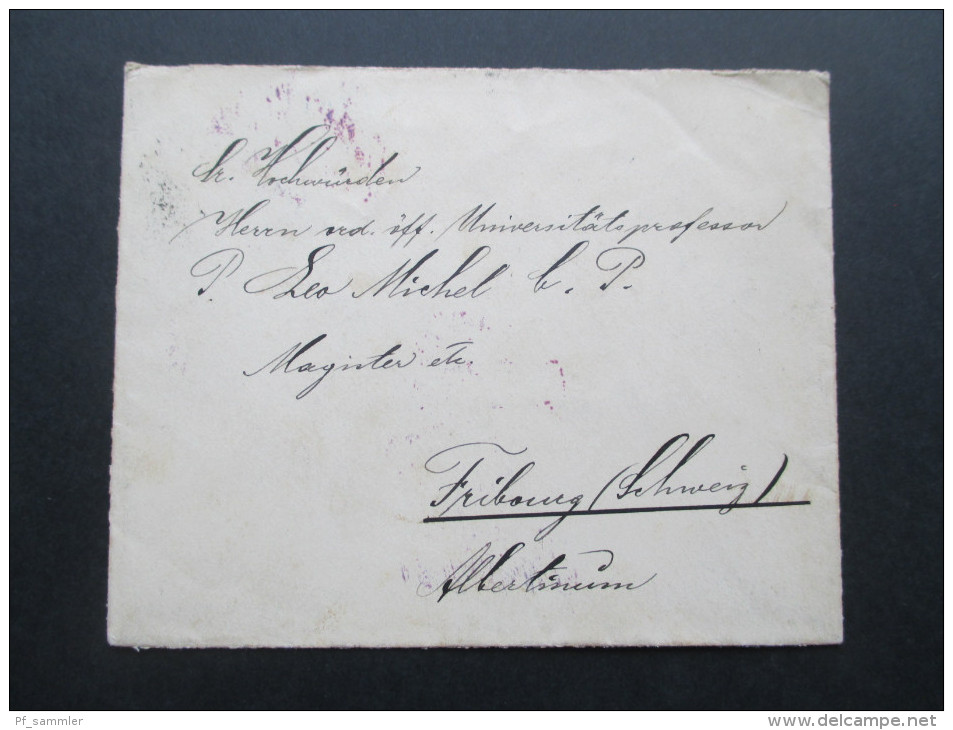 Sr. Hochwürden
Herrn ord. öff. Universitätsprofessor
P. Leo Michel O. P.
Magister etc.
Fribourg (Schweiz)
Albertinum
Pf_sammler
www.delcampe.net